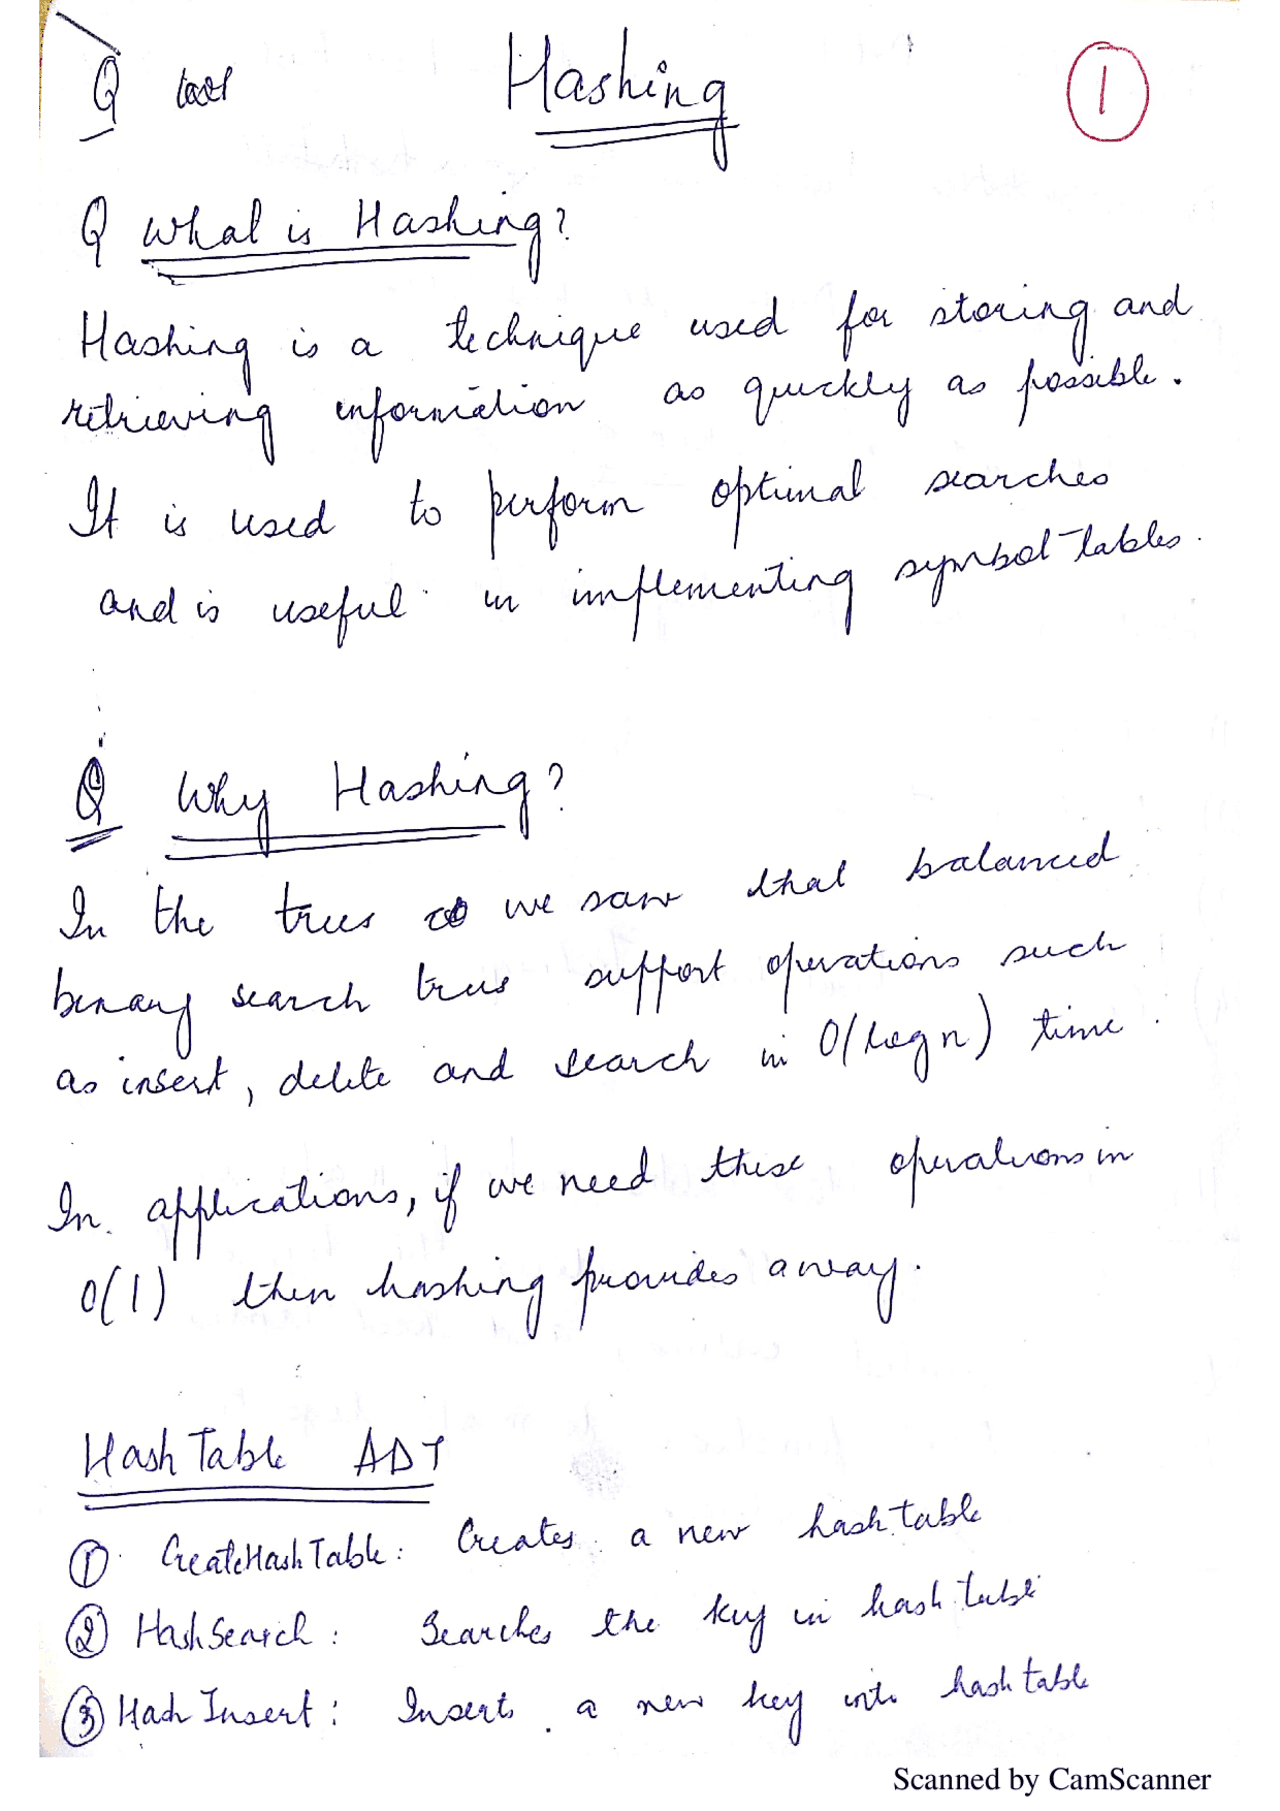 Hashing
1
Q
Q What is Hashing?
Hashing is a technique used for storing and
retrieving information as quickly as possible.
It is used to perform optimal searches
and is useful in implementing symbol tables.
Q Why Hashing?
In the trees we saw that balanced
binary search trees support operations such
as insert, delete and search in O(log n) time.
In applications, if we need these operations in
O(1) then hashing provides a way.
HashTable ADT
① CreateHashTable: Creates a new hash table
② HashSearch: Searches the key in hash table
③ HashInsert: Inserts a new key into hash table
Scanned by CamScanner